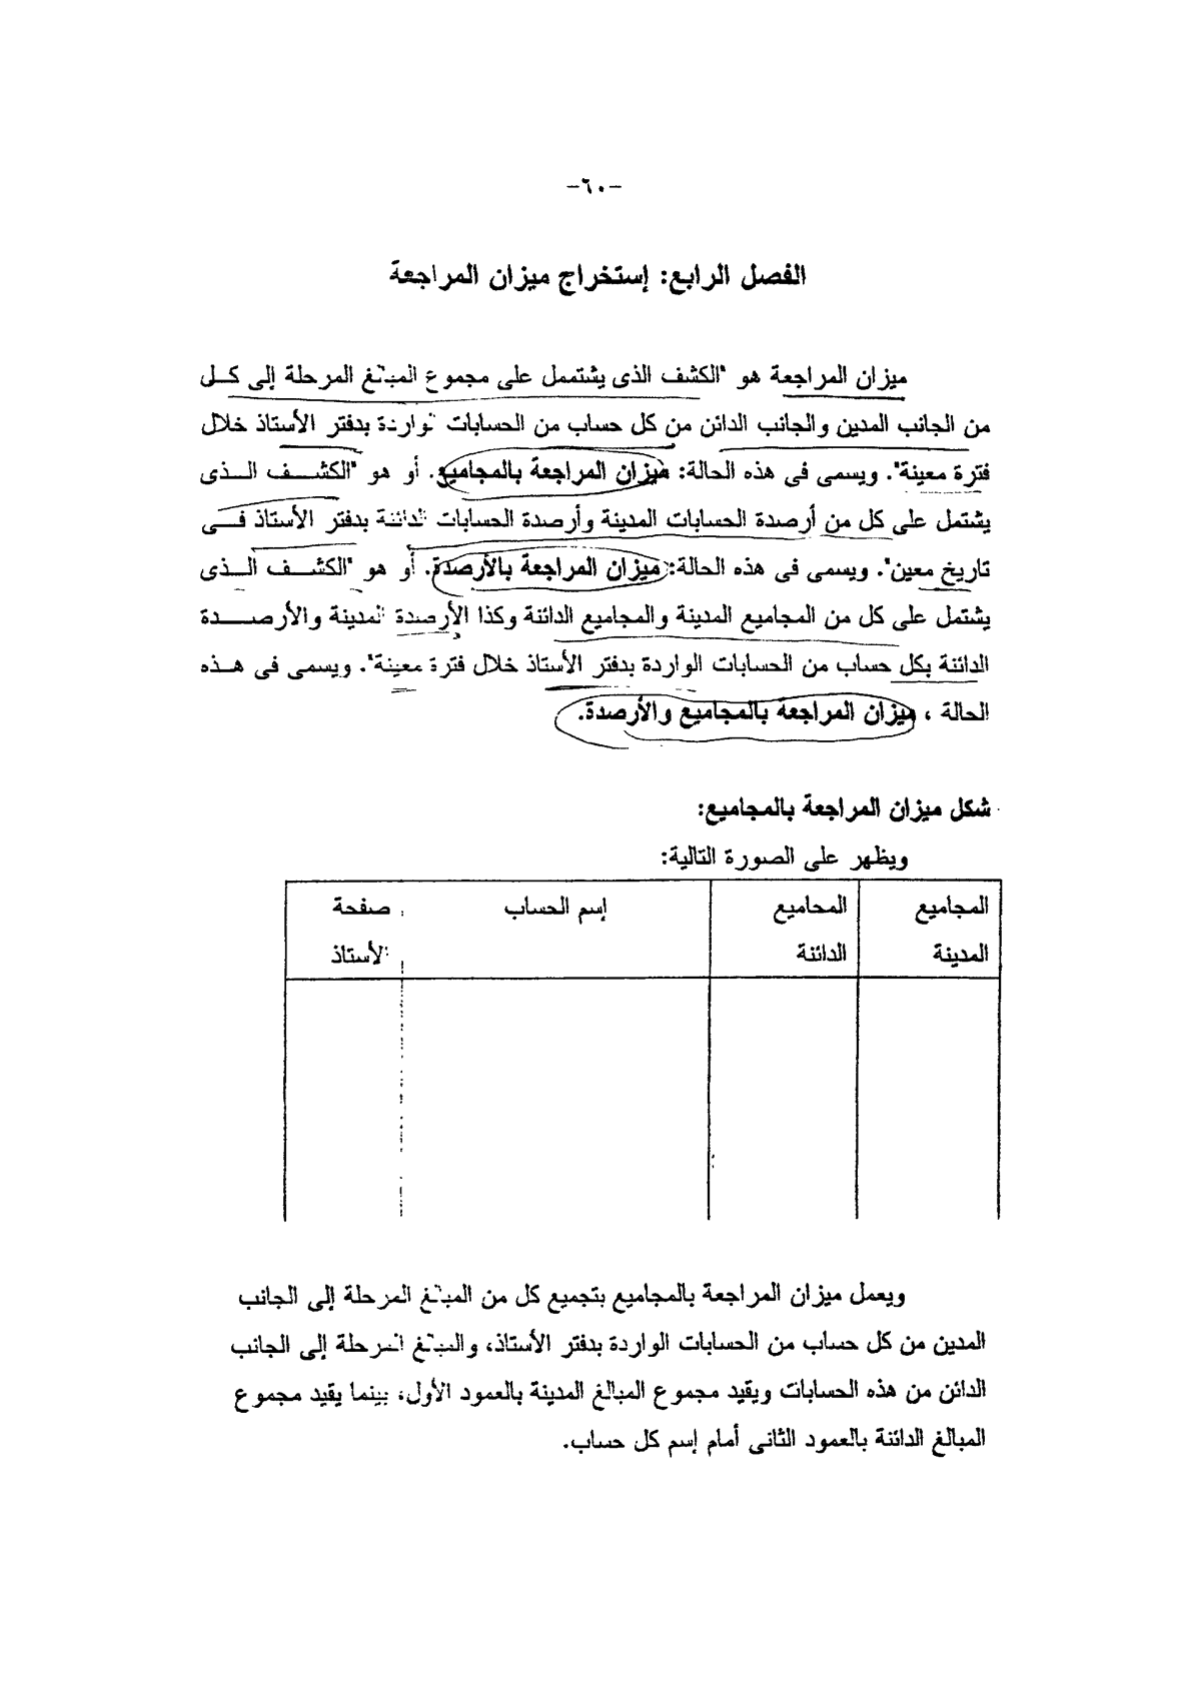 -٦٠-
الفصل الرابع: إستخراج ميزان المراجعة
ميزان المراجعة هو "الكشف الذى يشتمل على مجموع المبالغ المرحلة إلى كل
من الجانب المدين والجانب الدائن من كل حساب من الحسابات الواردة بدفتر الأستاذ خلال
فترة معينة". ويسمى فى هذه الحالة: ميزان المراجعة بالمجاميع. أو هو "الكشف الذى
يشتمل على كل من أرصدة الحسابات المدينة وأرصدة الحسابات الدائنة بدفتر الأستاذ فى
تاريخ معين". ويسمى فى هذه الحالة: ميزان المراجعة بالأرصدة. أو هو "الكشف الذى
يشتمل على كل من المجاميع المدينة والمجاميع الدائنة وكذا الأرصدة المدينة والأرصدة
الدائنة بكل حساب من الحسابات الواردة بدفتر الأستاذ خلال فترة معينة". ويسمى فى هذه
الحالة ، ميزان المراجعة بالمجاميع والأرصدة.
شكل ميزان المراجعة بالمجاميع:
ويظهر على الصورة التالية:
المجاميع المجاميع إسم الحساب صفحة
المدينة الدائنة الأستاذ
ويعمل ميزان المراجعة بالمجاميع بتجميع كل من المبالغ المرحلة إلى الجانب
المدين من كل حساب من الحسابات الواردة بدفتر الأستاذ، والمبالغ المرحلة إلى الجانب
الدائن من هذه الحسابات ويقيد مجموع المبالغ المدينة بالعمود الأول، بينما يقيد مجموع
المبالغ الدائنة بالعمود الثانى أمام إسم كل حساب.